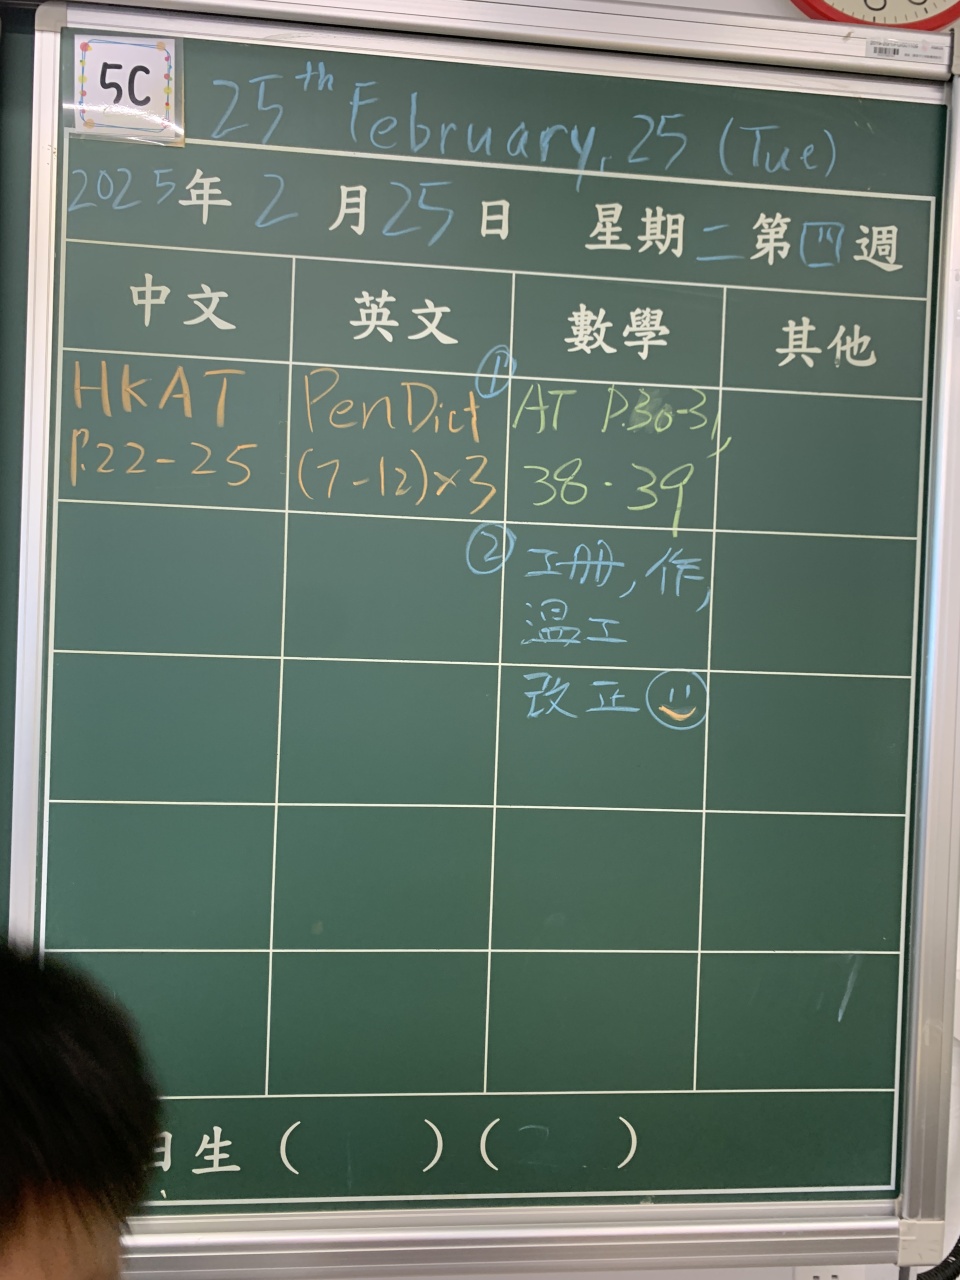 5C
25th February, 25 (Tue)
2025年 2月25日 星期二第四週
中文 英文 數學 其他
HKAT
P.22-25
PenDict
(7-12)×3
① AT P.30-31,
38.39
② 工冊, 作,
溫工
改正
日生 ( ) ( )